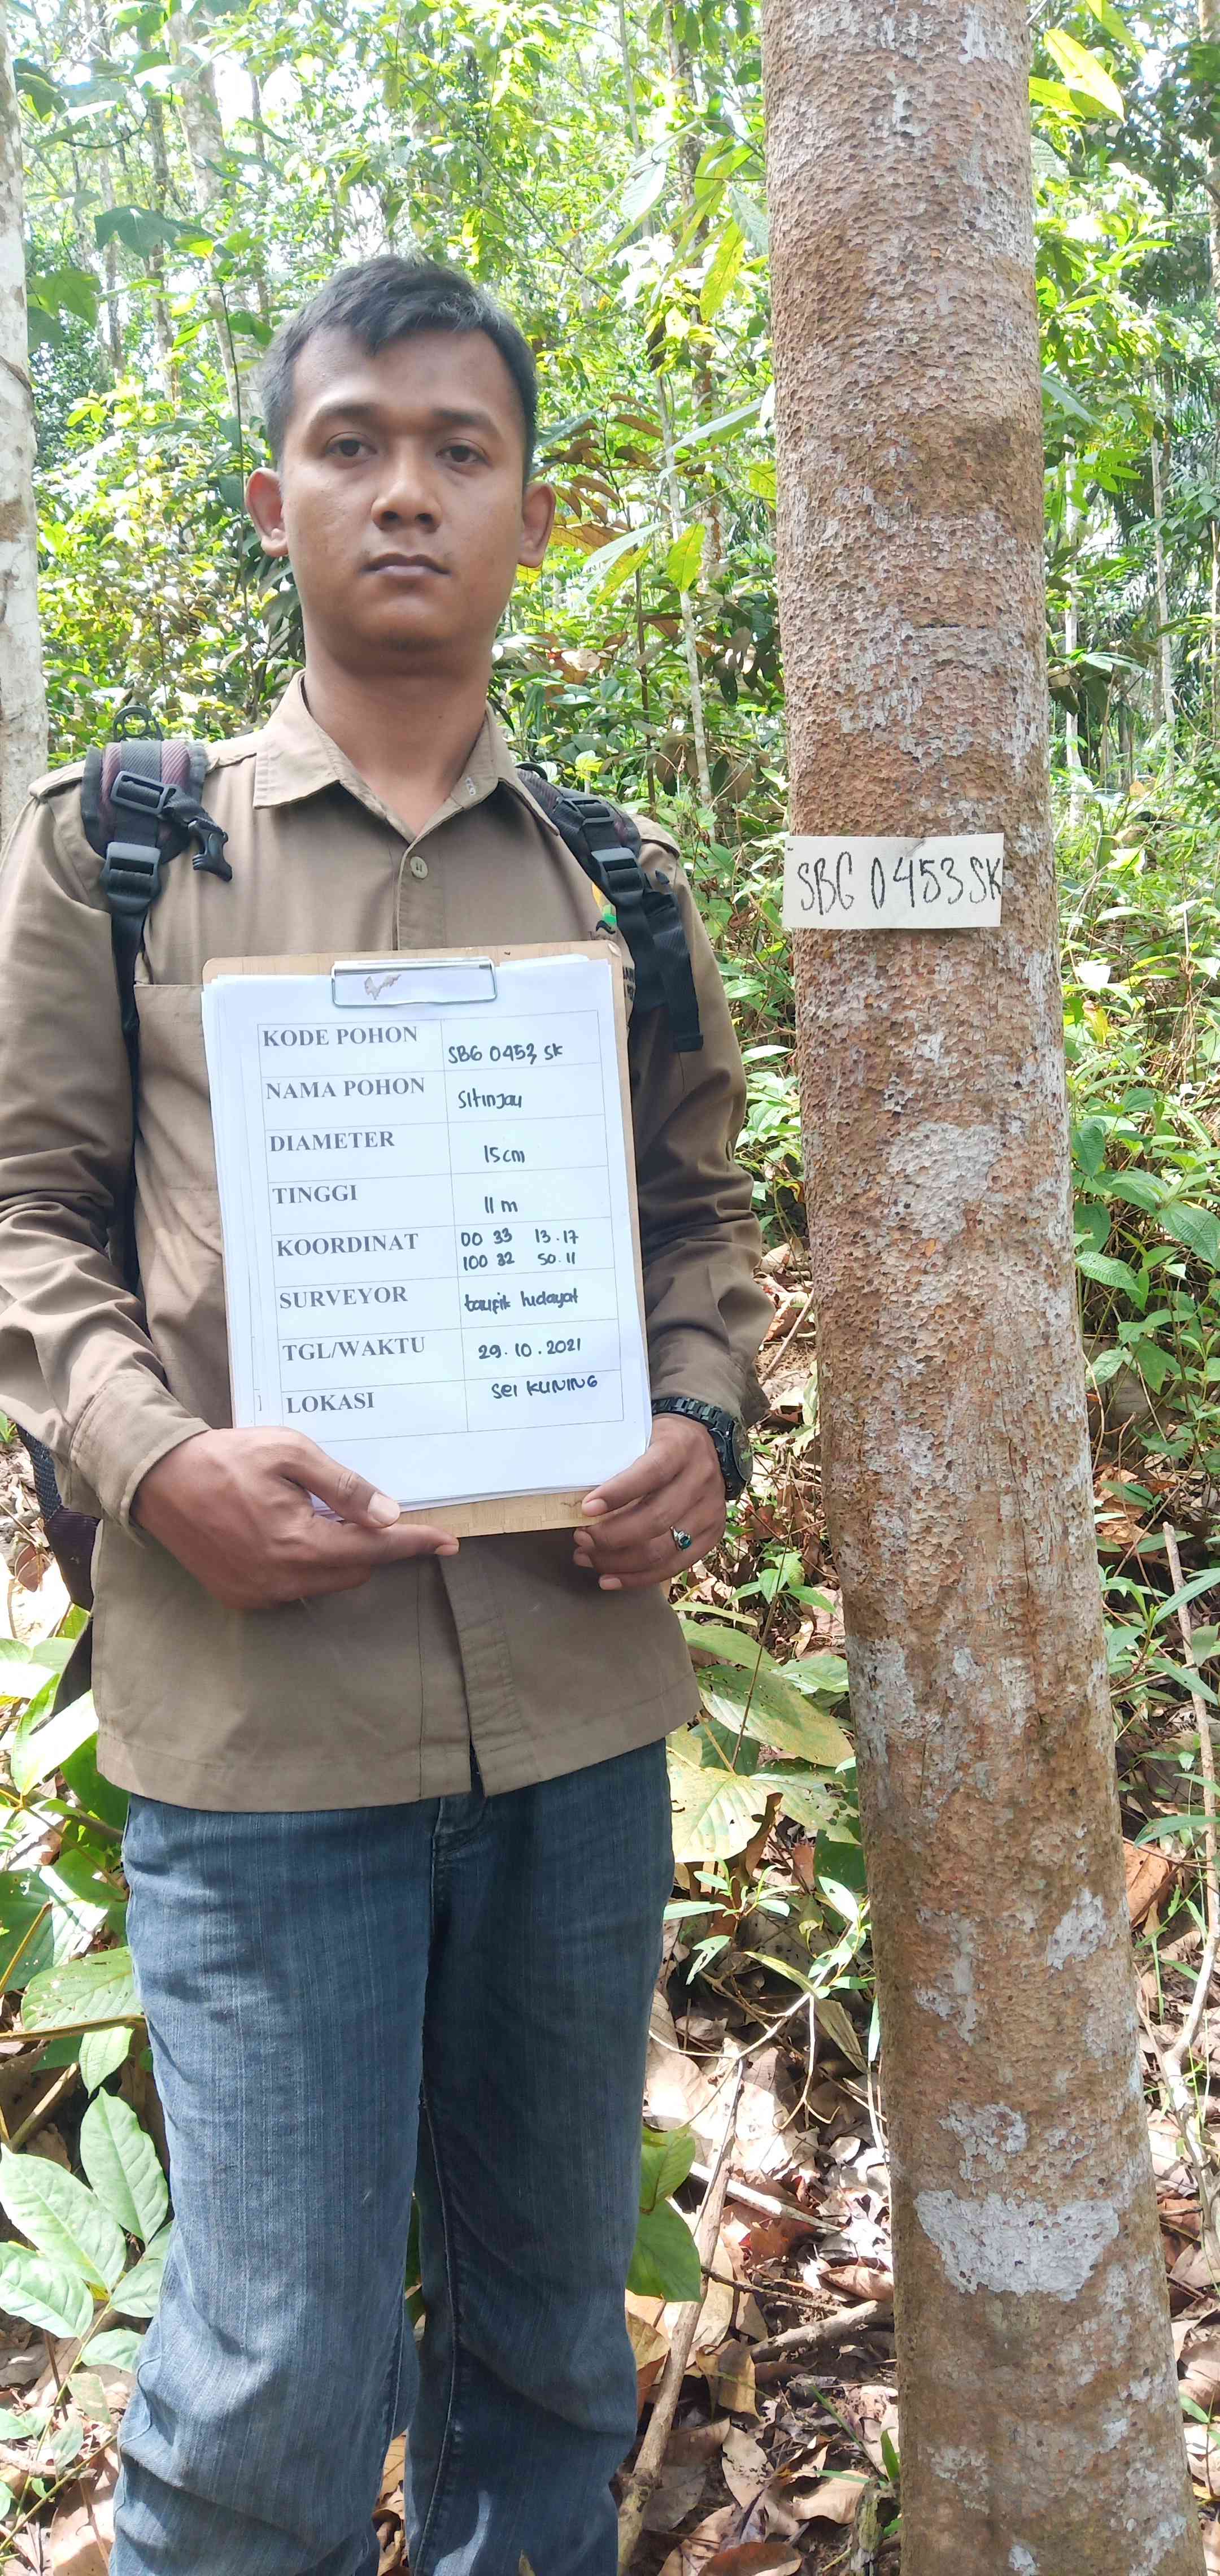 SBG 0453 SK
KODE POHON SBG 0453 SK
NAMA POHON Sitinjau
DIAMETER 15 cm
TINGGI 11 m
KOORDINAT 00 33 13.17
100 32 50.11
SURVEYOR taufik hidayat
TGL/WAKTU 29.10.2021
LOKASI Sei KUNING